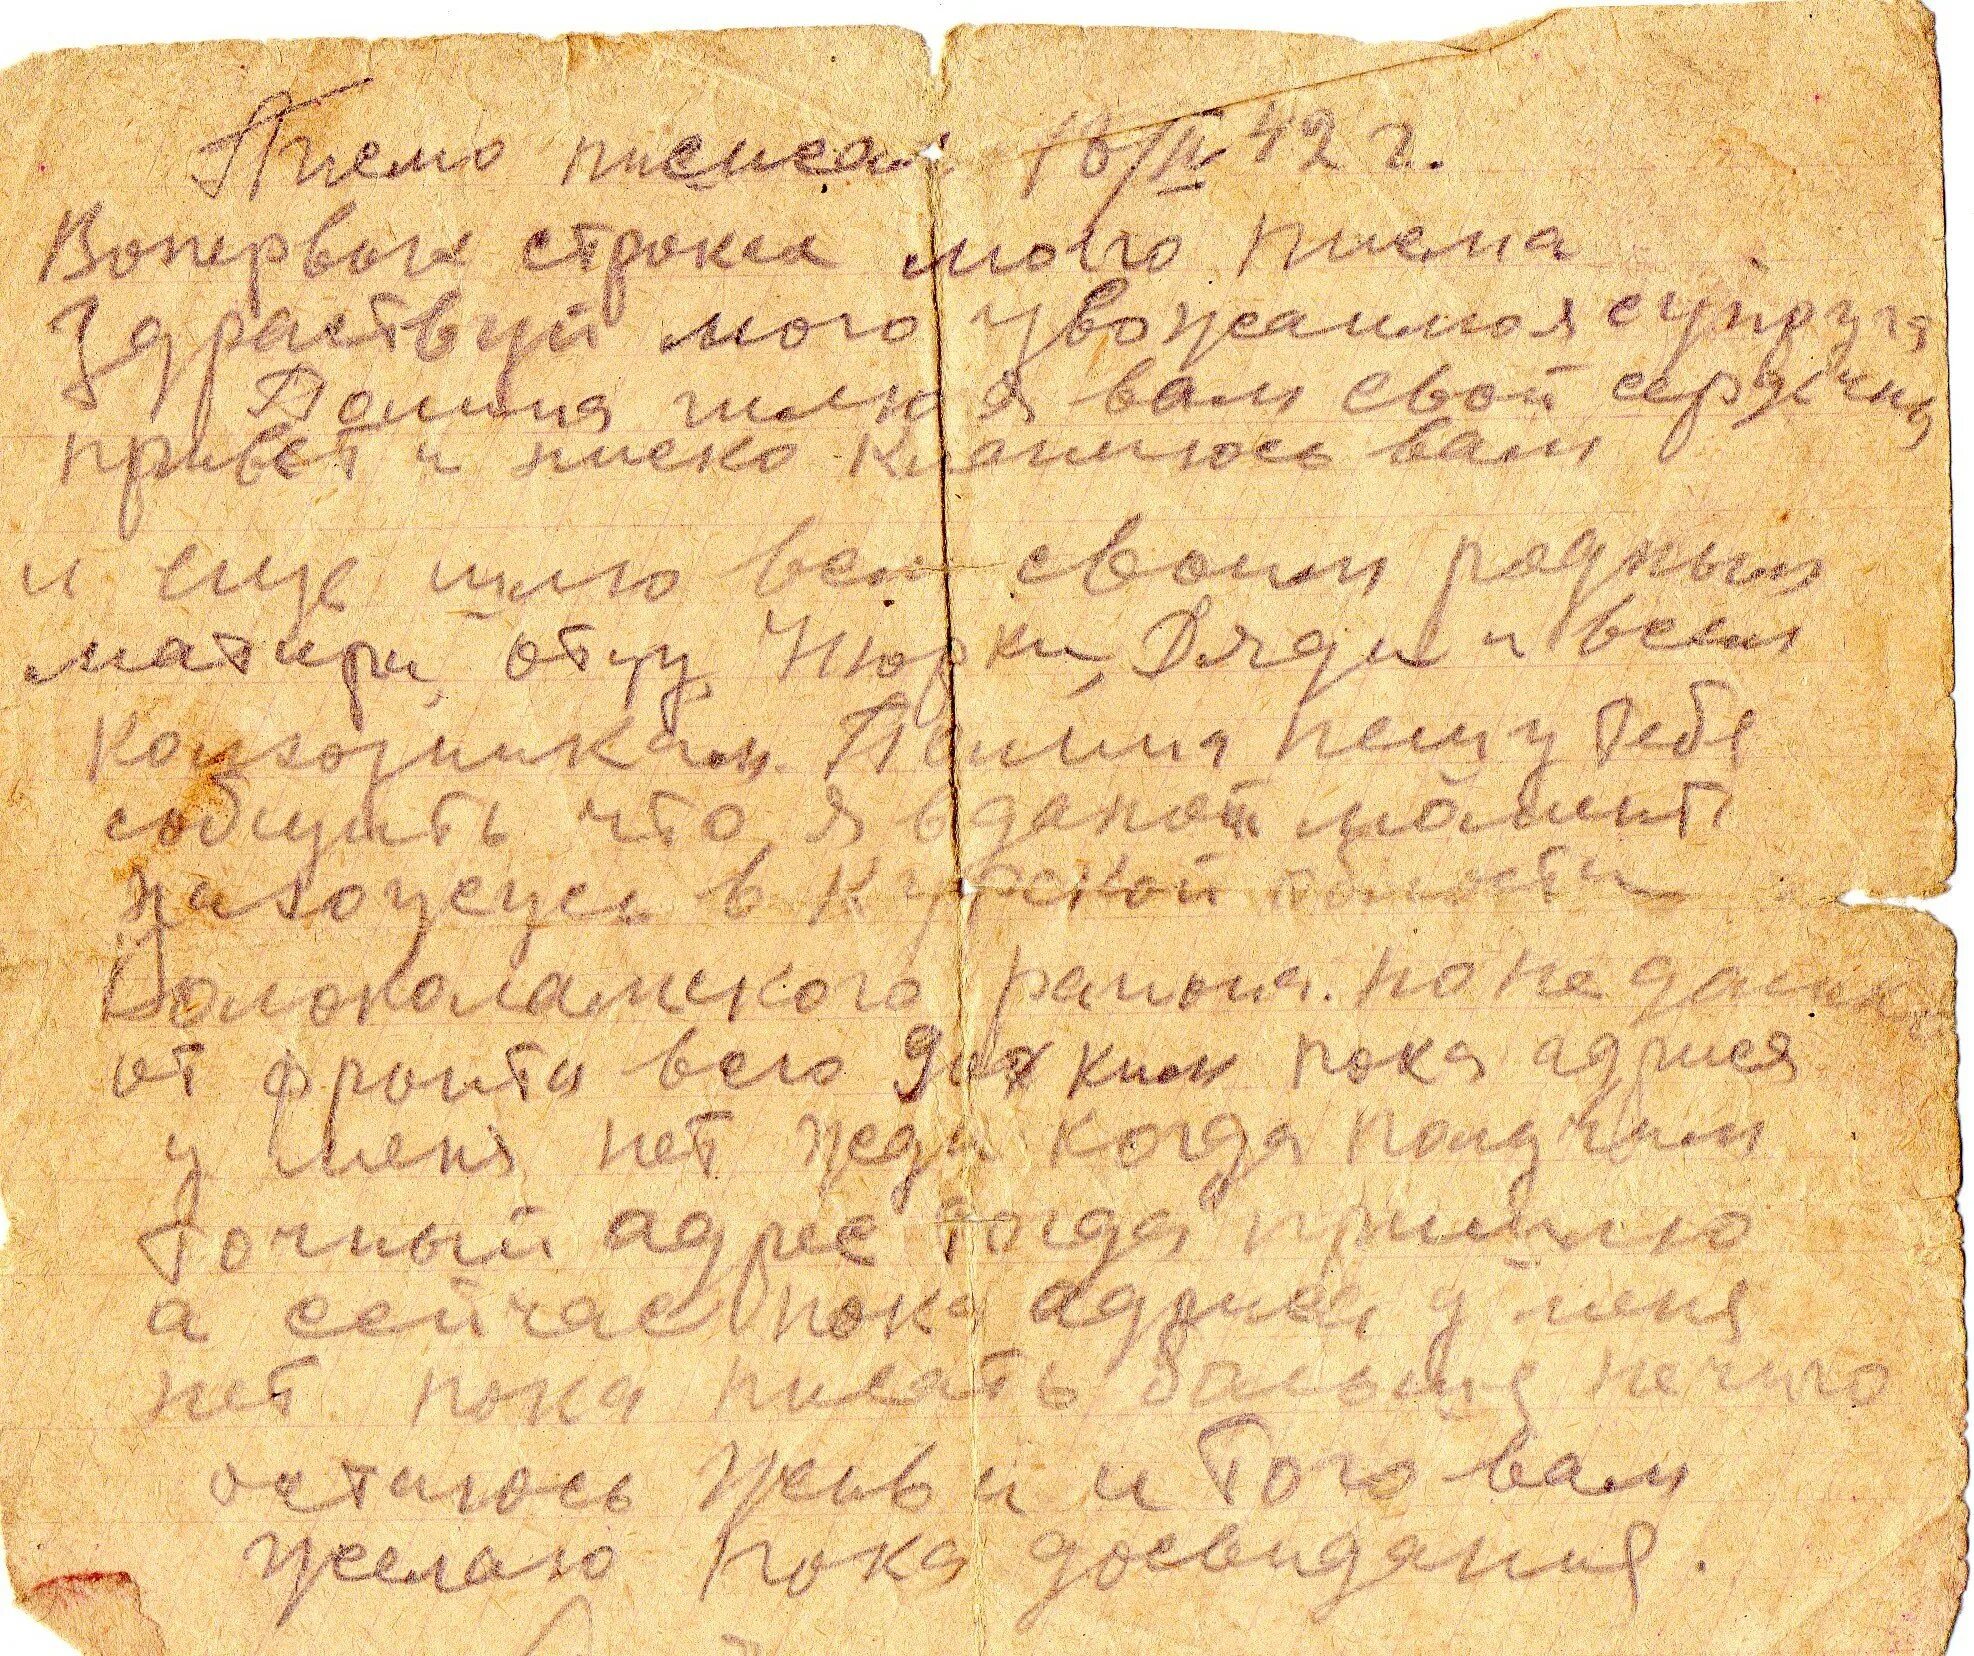 Писмо писал 18/II 42 г.
Вопервых строках моего писма
Здраствуй моя уважаимая супруга
Полина шлю я вам свой
привет и ниско кланиюсь вам
и еще шлю всем своим родным
матири, отцу, Нюрки, Дяди и всем
колхозникам. Полина пешу тебе
собщить что я в даной момент
нахожусь в Курской области
Волоколамского раиона. по не далик
от фронта всего 9 км пока адриса
у меня нет жди когда получим
точный адрес тогда пришлю
а сейчас пока адриса у меня
нет пока писать больше нечиго
остаюсь жив и и того вам
желаю пока досвидания.